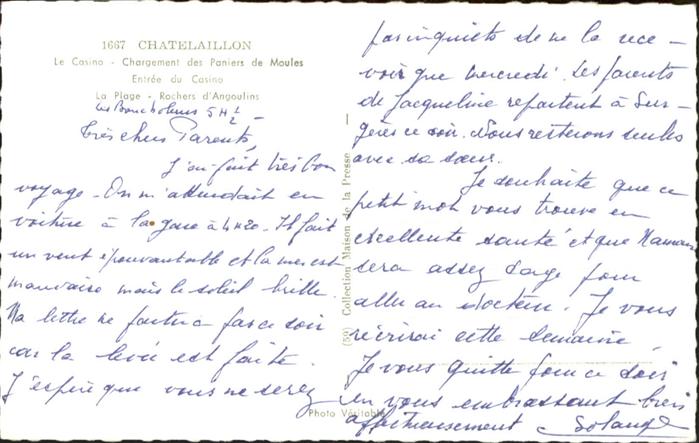 1667 CHATELAILLON
Le Casino - Chargement des Paniers de Moules
Entrée du Casino
La Plage - Rochers d'Angoulins
Les Boucholeurs 5 H ½
Très chers Parents,
J'ai fait très bon
voyage. On m'attendait en
voiture à la gare à 4 H 20. Il fait
un vent épouvantable et la mer est
mauvaise mais le soleil brille.
Ma lettre ne partira pas ce soir
car la levée est faite.
J'espère que vous ne serez
Photo Véritable
(59) Collection Maison de la Presse
pas inquiets de ne la rece-
voir que mercredi. Les parents
de Jacqueline repartent à Sur-
gères ce soir. Nous resterons seules
avec sa sœur.
Je souhaite que ce
petit mot vous trouve en
excellente santé et que Maman
sera assez sage pour
aller au docteur. Je vous
récrirai cette semaine.
Je vous quitte pour ce soir
en vous embrassant bien
affectueusement Solange